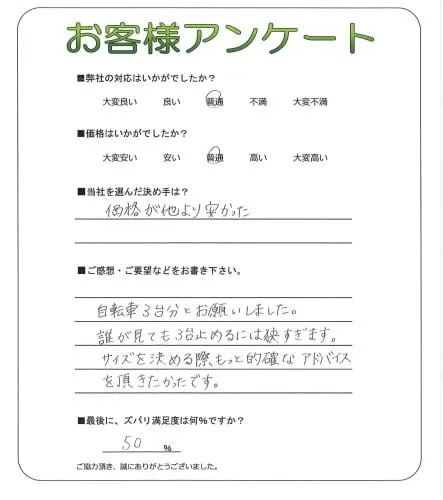 お客様アンケート
■弊社の対応はいかがでしたか?
大変良い 良い 普通 不満 大変不満
■価格はいかがでしたか?
大変安い 安い 普通 高い 大変高い
■当社を選んだ決め手は?
価格が他より安かった
■ご感想・ご要望などをお書き下さい。
自転車3台分とお願いしました。
誰が見ても3台止めるには狭すぎます。
サイズを決める際もっと的確なアドバイス
を頂きたかったです。
■最後に、ズバリ満足度は何%ですか?
50 %
ご協力頂き、誠にありがとうございました。